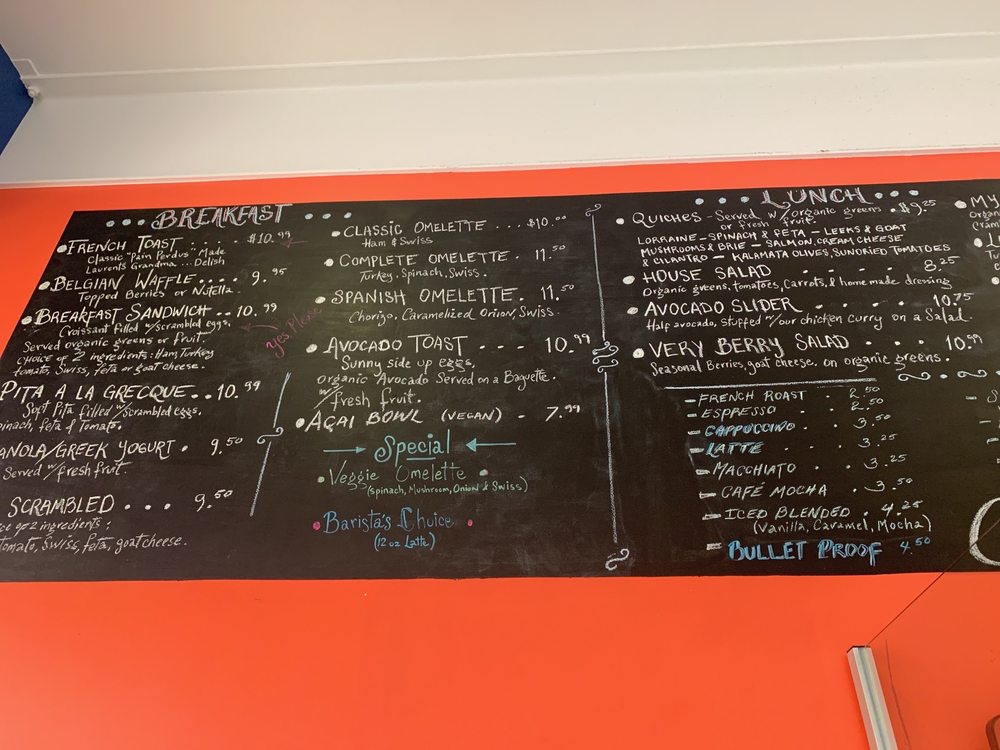 BREAKFAST
FRENCH TOAST . . . $10.99
Classic "Pain Perdus" Made
Laurent's Grandma... Delish
BELGIAN WAFFLE . . . 9.95
Topped Berries or Nutella
BREAKFAST SANDWICH - - 10.99
Croissant filled w/scrambled eggs,
Served organic greens or fruit.
choice of 2 ingredients: Ham, Turkey
tomato, Swiss, feta or goat cheese.
yes, Please
PITA A LA GRECQUE . . 10.99
Soft Pita filled w/scrambled eggs,
inach, feta & Tomato.
ANOLA/GREEK YOGURT . 9.50
Served w/fresh fruit.
SCRAMBLED . . . 9.50
ce of 2 ingredients:
omato, Swiss, feta, goat cheese.
CLASSIC OMELETTE . . . $10.00
Ham & Swiss
COMPLETE OMELETTE . 11.50
Turkey, Spinach, Swiss.
SPANISH OMELETTE. 11.50
Chorizo, Caramelized Onion, Swiss.
AVOCADO TOAST - - - 10.99
Sunny side up eggs,
organic Avocado Served on a Baguette.
w/fresh fruit.
AÇAI BOWL (VEGAN) - 7.99
Special
Veggie Omelette
(spinach, Mushroom, Onion & Swiss)
Barista's Choice
(12 oz Latte)
LUNCH
QUICHES - Served w/organic greens . $9.25
or fresh fruit
LORRAINE - SPINACH & FETA - LEEKS & GOAT
MUSHROOMS & BRIE - SALMON, CREAM CHEESE
& CILANTRO - KALAMATA OLIVES, SUNDRIED TOMATOES
HOUSE SALAD . . . . 8.25
Organic greens, tomatoes, carrots, & homemade dressing
AVOCADO SLIDER . . . . . 10.75
Half avocado, stuffed w/our chicken curry on a Salad.
VERY BERRY SALAD . . . 10.99
Seasonal Berries, goat cheese, on organic greens.
- FRENCH ROAST . 2.50
- ESPRESSO . 2.50
- CAPPUCCINO . 3.50
- LATTE . 3.25
- MACCHIATO . 3.25
- CAFÉ MOCHA . 3.50
- ICED BLENDED . 4.25
(Vanilla, Caramel, Mocha)
- BULLET PROOF 4.50
MY
Cram